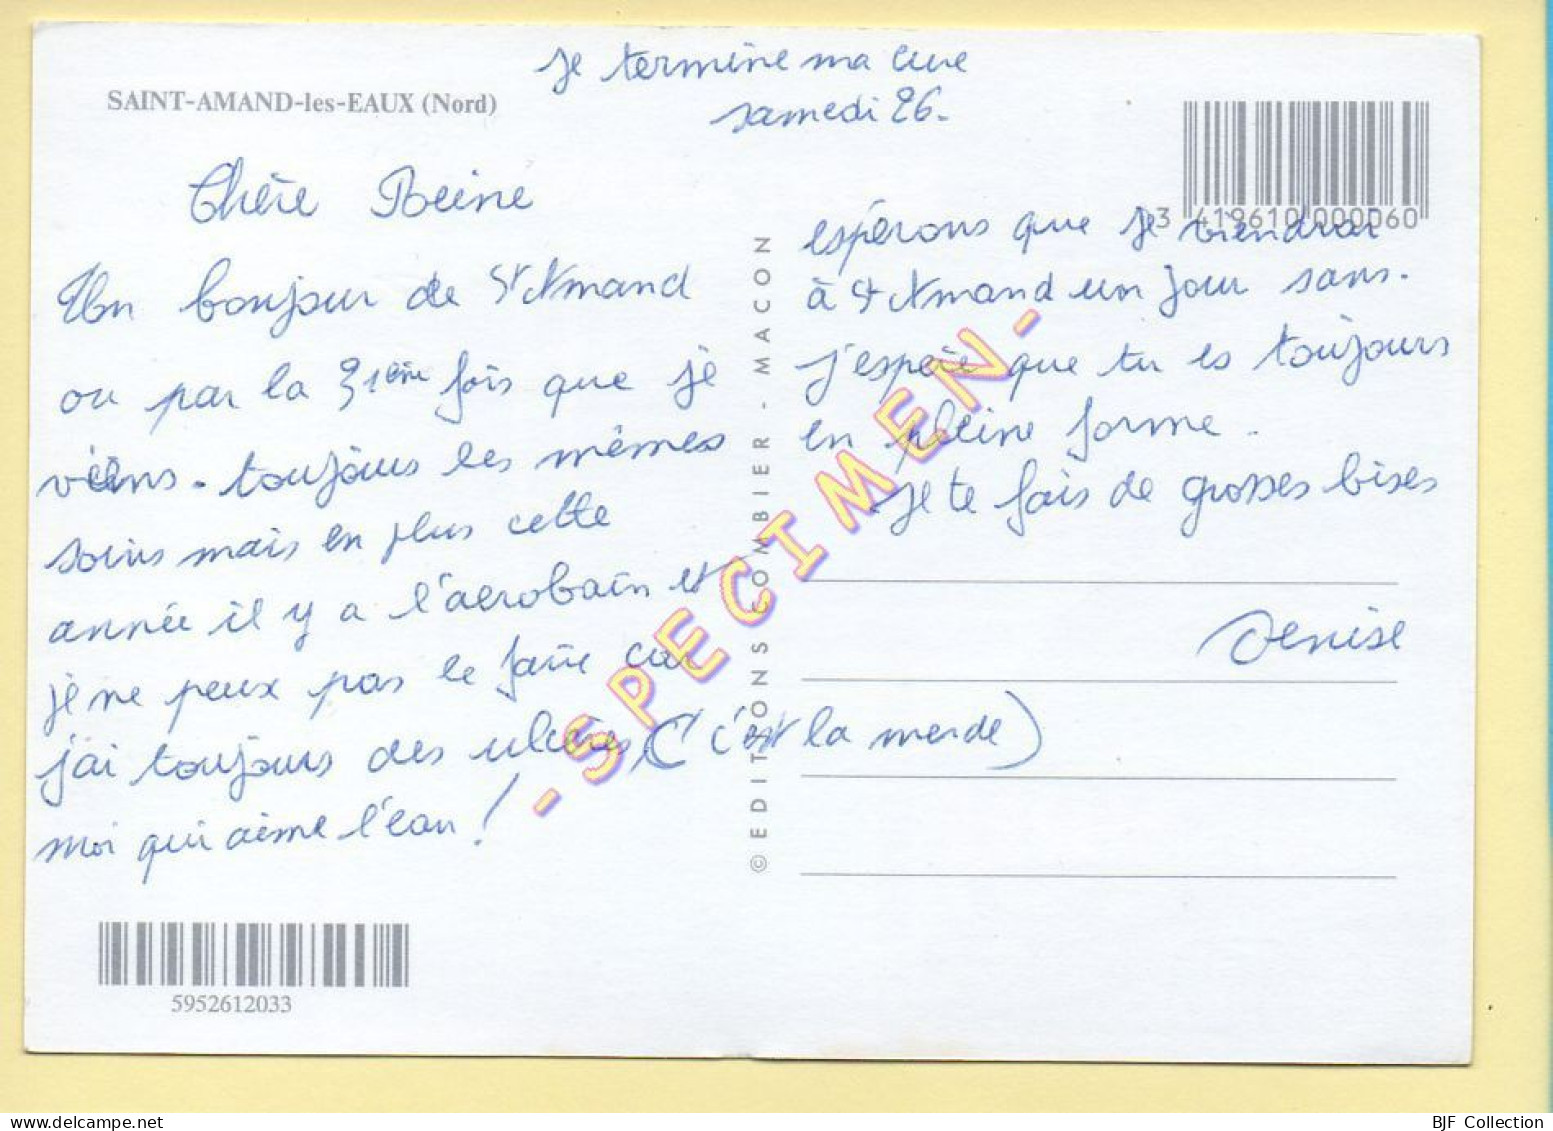 je termine ma cure
samedi 26.
SAINT-AMAND-les-EAUX (Nord)
Chère Reine
Un bonjour de St Amand
ou par la 31ème fois que je
viens. toujours les mêmes
soins mais en plus cette
année il y a l'aerobain et
je ne peux pas le faire car
j'ai toujours des ulcères, (c'est la merde)
moi qui aime l'eau !
5952612033
3 419610 000060
espérons que je viendrai
à St Amand un jour sans.
j'espère que tu es toujours
en pleine forme.
Je te fais de grosses bises
Denise
© EDITIONS COMBIER - MACON
-SPECIMEN-
BJF Collection